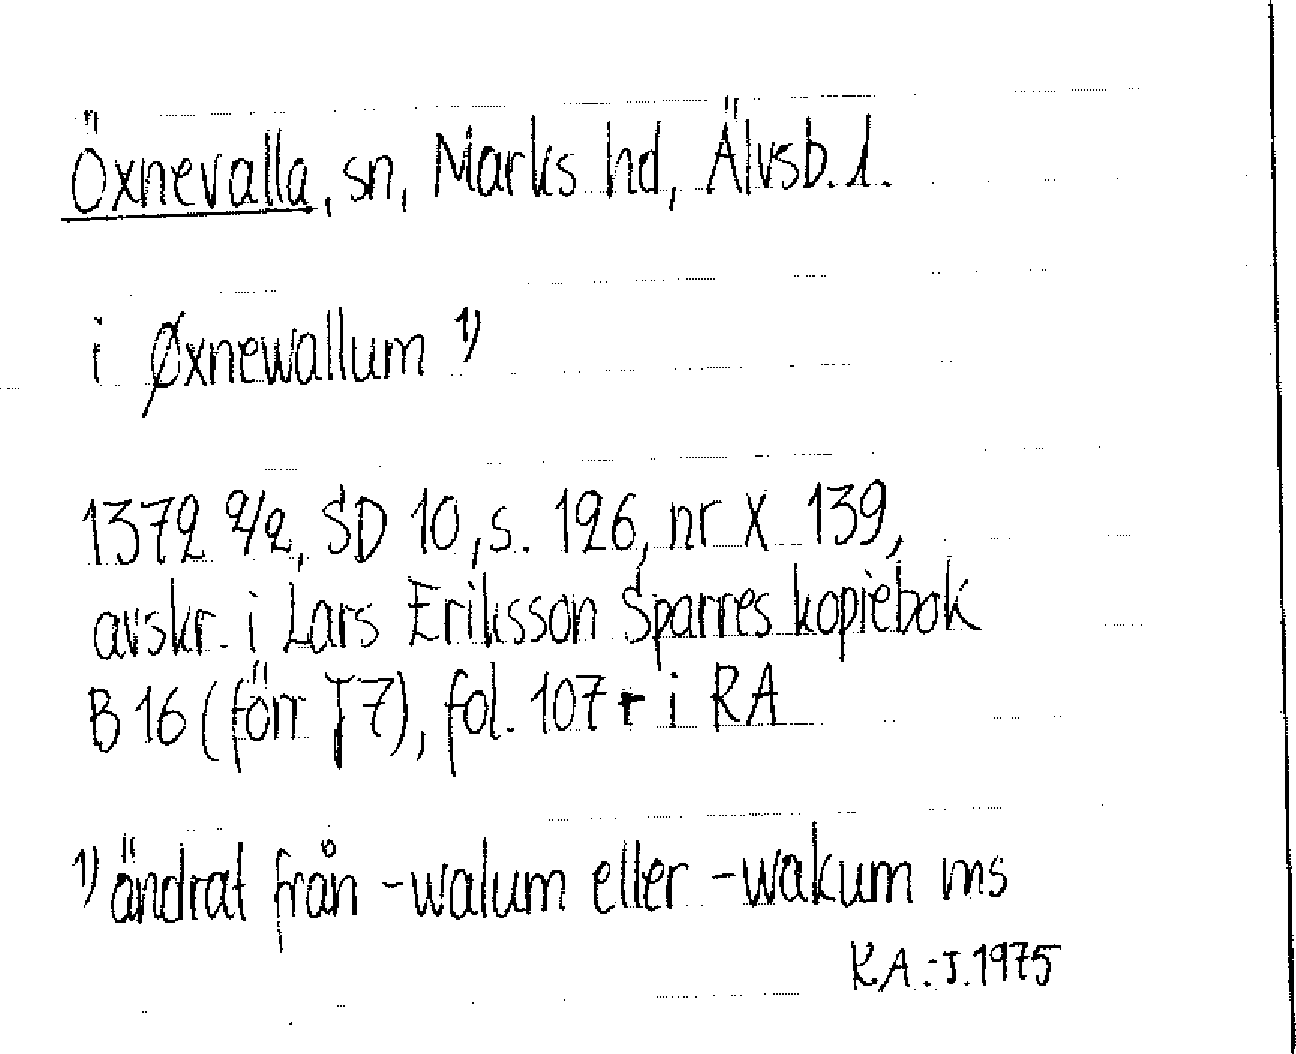 Öxnevalla, sn, Marks hd, Älvsb. l.
i Øxnewallum 1)
1372 2/2, SD 10, s. 126, nr X 139,
avskr. i Lars Eriksson Sparres kopiebok
B 16 (förr T7), fol. 107 r i RA
1) ändrat från -walum eller -wakum ms
K.A.-J. 1975